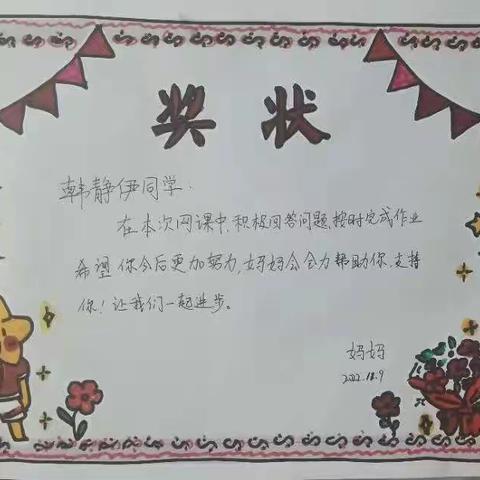 奖状
韩静伊同学:
在本次网课中,积极回答问题,按时完成作业
希望你今后更加努力,妈妈会全力帮助你,支持
你!让我们一起进步。
妈妈
2022.12.9